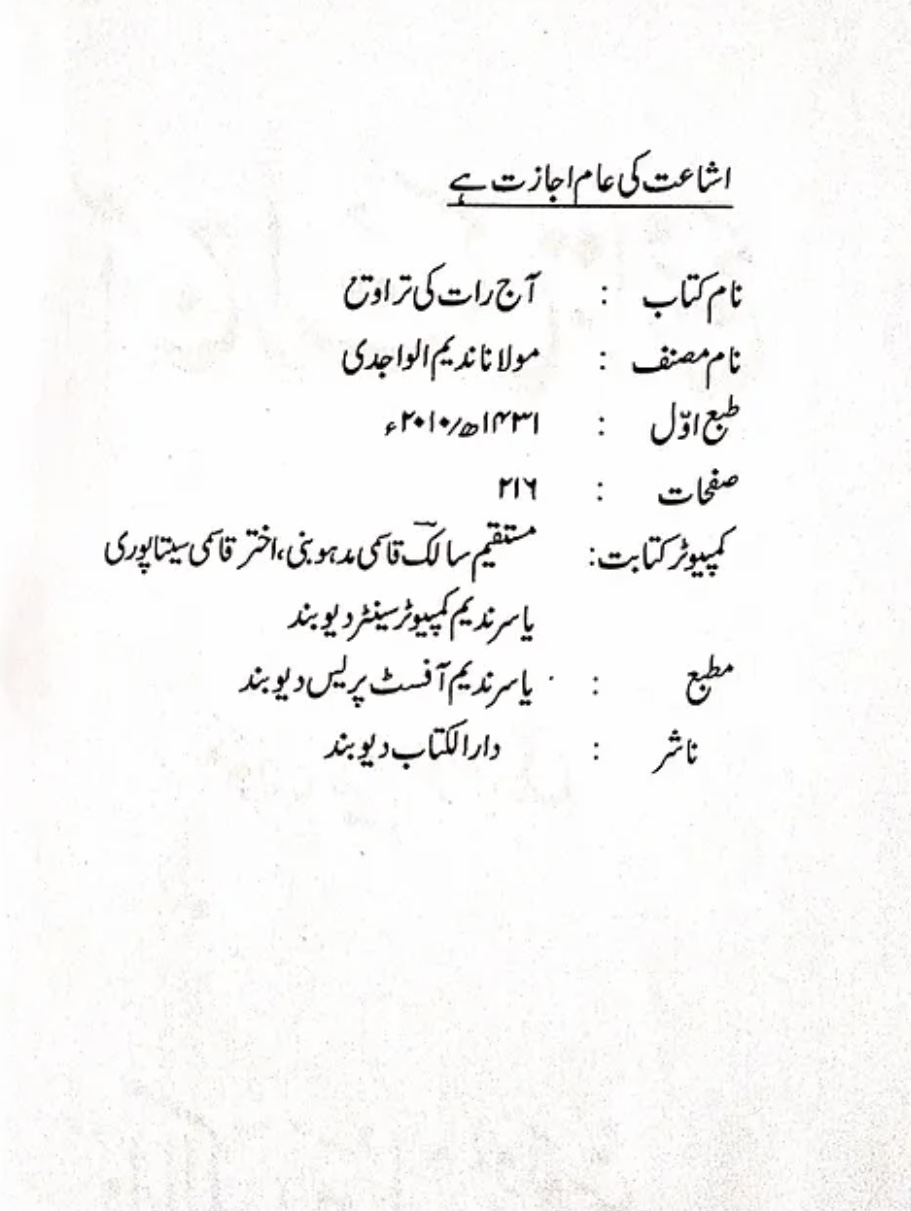 اشاعت کی عام اجازت ہے
نام کتاب : آج رات کی تراویح
نام مصنف : مولانا ندیم الواجدی
طبع اوّل : ۱۴۳۱ھ/۲۰۱۰ء
صفحات : ۲۱۶
کمپیوٹر کتابت: مستقیم سالکؔ قاسمی مدہوبنی، اختر قاسمی سیتاپوری
یاسر ندیم کمپیوٹر سینٹر دیوبند
مطبع : یاسر ندیم آفسٹ پریس دیوبند
ناشر : دارالکتاب دیوبند